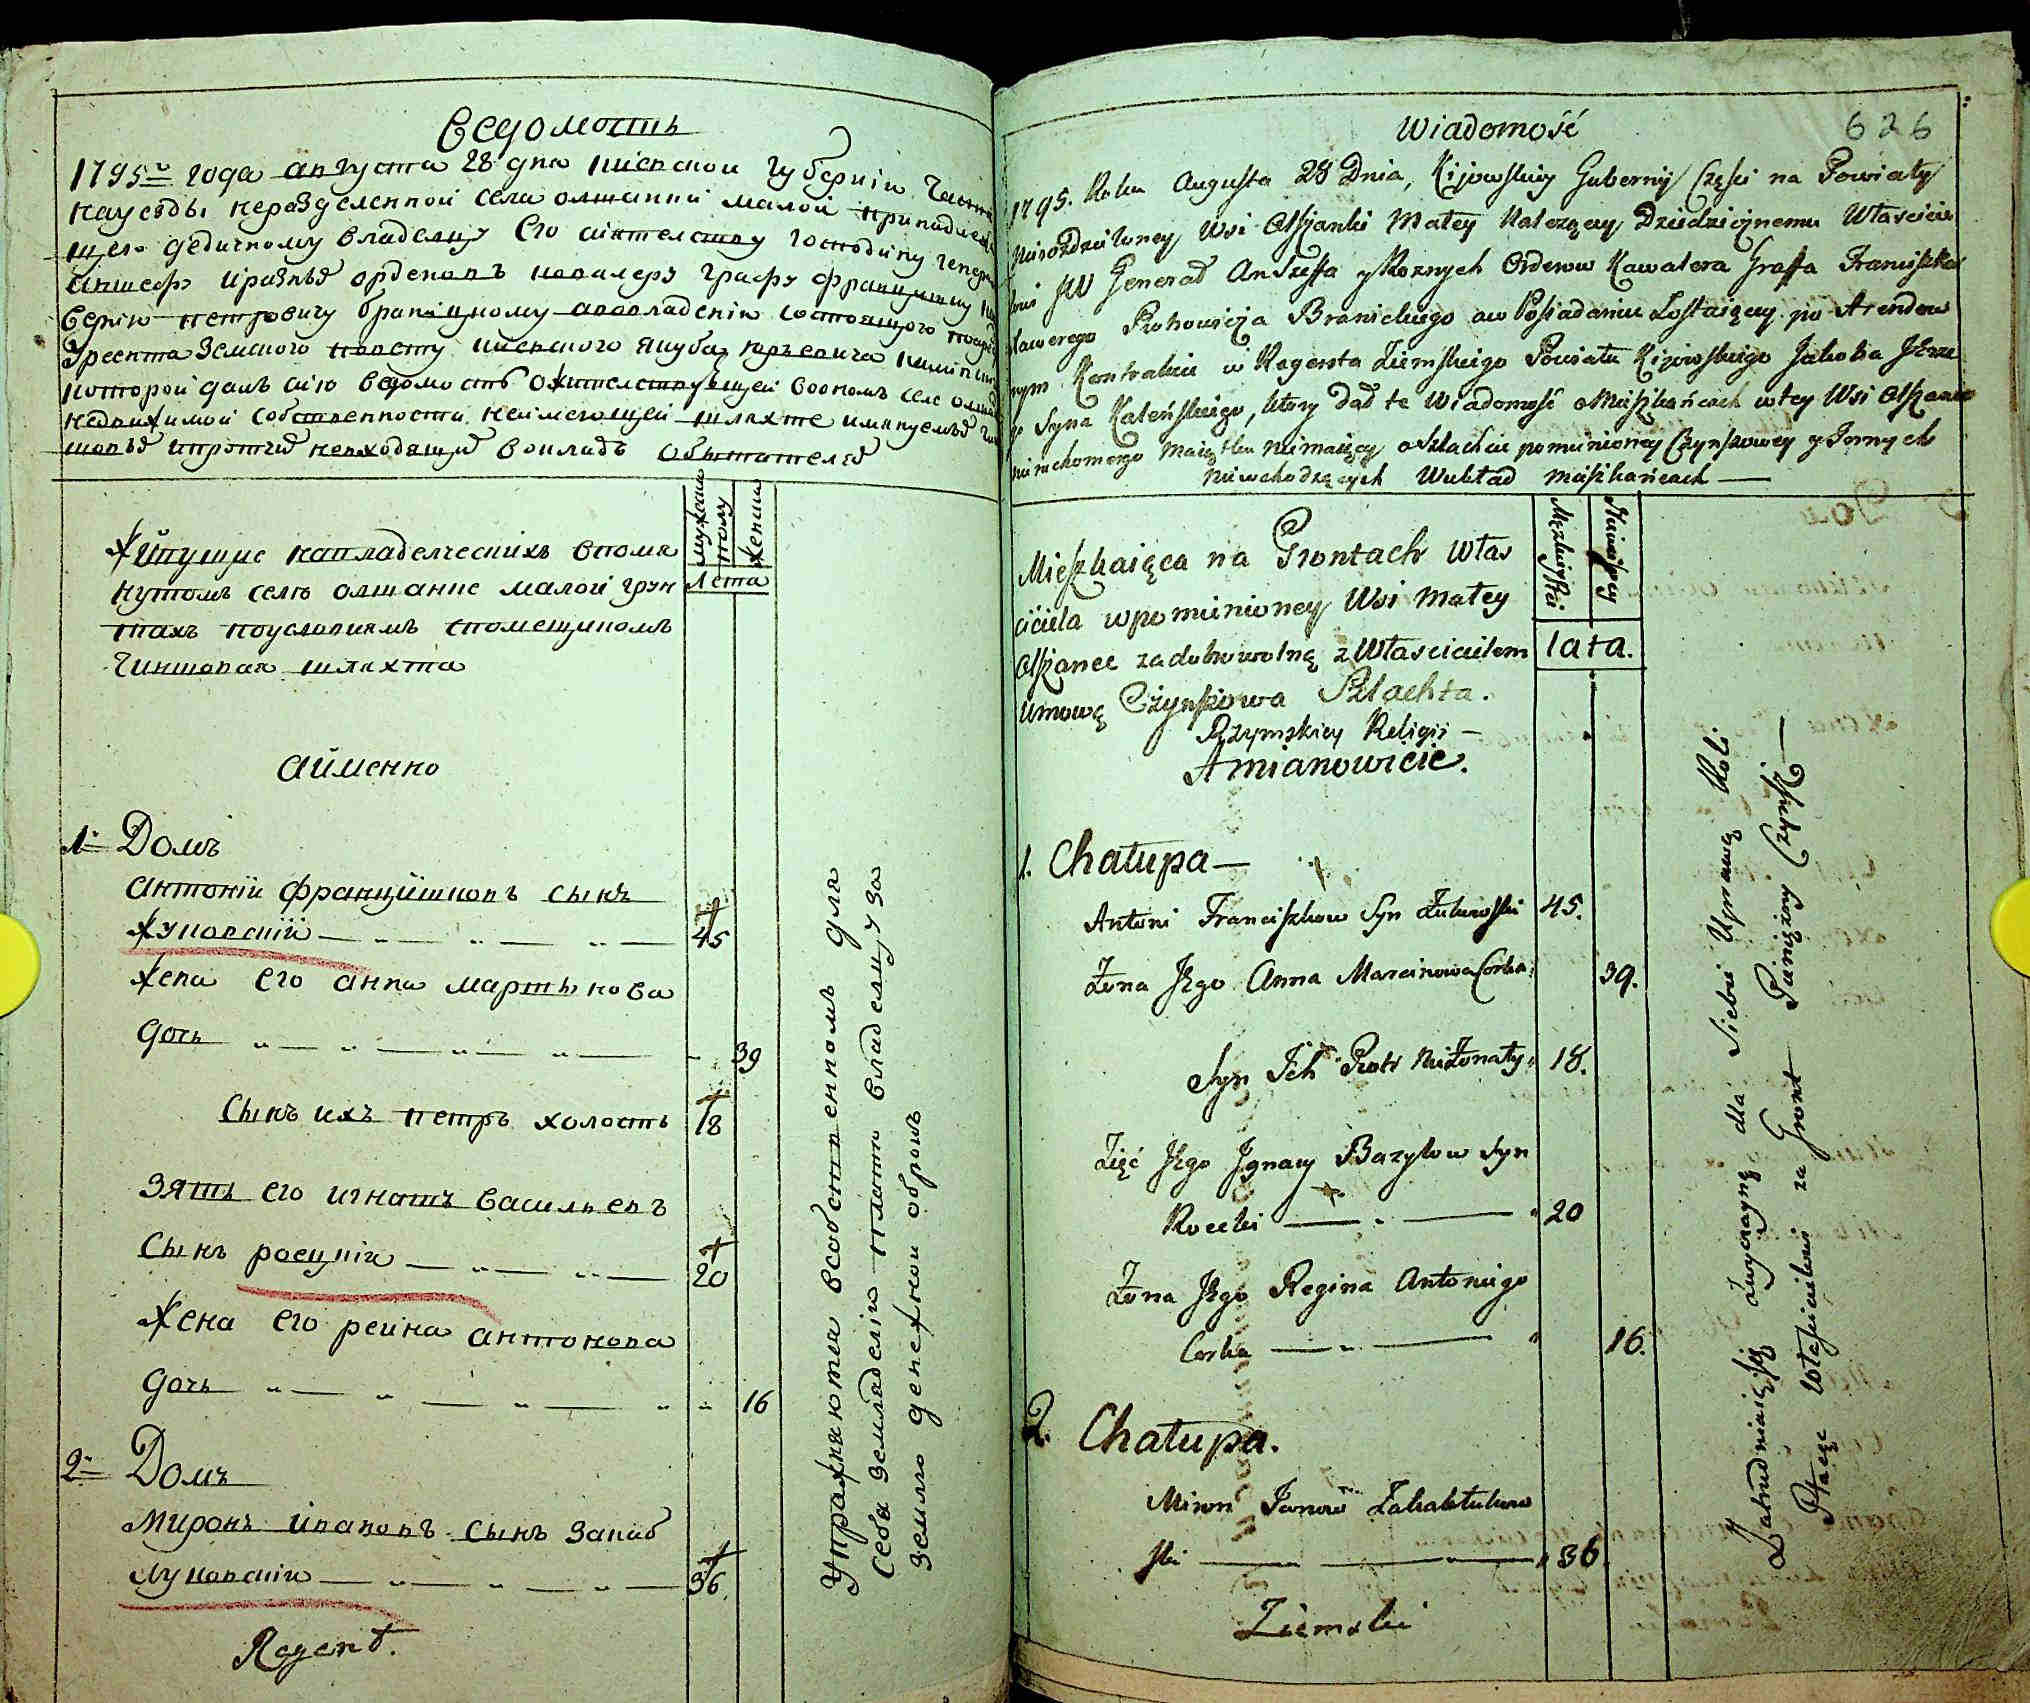 Ведомость
1795го года августа 28 дня киевской губернии части
на уезды неразделенной села олшанки малой принадлеж
щего дедичному владелцу Его сиятелству господину генералъ
аншефу и разныхъ орденовъ кавалеру графу францишку
верию петровичу браницкому а во владении состоящого
Уреента Земского повету киевского якуба юрьевича
которой далъ сию ведомость о жителствующей в ономъ селе
недвижимой собственности неимеющей шляхте имянуемые
шовые и протчие невходящие в окладъ обыватели
мужеска полу
женска
Лета
Живущие на владелческихъ в помя
нутомъ селе олшанке малой грун
тахъ по условиямъ с помещикомъ
чиншовая шляхта
а именно
1е Домъ
антоний францишковъ сынъ
жуковский 45
жена его анна мартынова
дочь 39
сынъ ихъ петръ холость 18
зять его игнатъ васильевъ
сынъ росцкий 20
жена его реина антонова
дочь 16
2е Домъ
миронъ ивановъ сынъ забаб
луковский 36
Regent.
Упражняются в собственномъ для
себя земледелии платя владелцу за
землю денежной оброкъ
Wiadomość
626
1795. Roku Augusta 28 Dnia, Kijowskiey Gubernij Części na Powiaty
nierozdzieloney Wsi Olszanki Małey należącey Dziedzicznemu Właścicie
lowi JW Generał Anszeffa y Roznych Orderow Kawalera Graffa Franciszka
Xawerego Piotrowicza Branickiego a w Posiadaniu zostaiącey po Arendow
nym Kontrakcie u Regenta Ziemskiego Powiatu Kijowskiego Jakoba
go Syna Kaleńskiego, ktory dał te Wiadomość o Mieszkańcach w tey Wsi Olszance
nieruchomego Maiątku niemaiącey o Szlachcie pomienioney Czynszowey y Innych
niewchodzących W układ mieszkańcach —
Męzkiey Płci
Niewieścey
lata.
Mieszkaiąca na Grontach Włas
ciciela w pomienioney Wsi Małey
Olszance za dobrowolną z Właścicielem
Umową Czynszowa Szlachta.
Rzymskiey Religii —
A mianowicie.
1. Chałupa —
Antoni Franciszkow Syn Żukowski 45.
Żona Jego Anna Marcinowa Corka 39.
Syn Ich Piotr Nieżonaty 18.
Zięć Jego Jgnacy Bazylow Syn
Roccki 20
Żona Jego Regina Antoniego
Corka 16.
2. Chałupa.
Miron Janow Zabablukow
ski 36
Ziemski
Zatrudniaią się Zwyczayną dla Siebie Uprawą Roli
Płacąc Właścicielowi za Gront Pieniężny Czynsz —